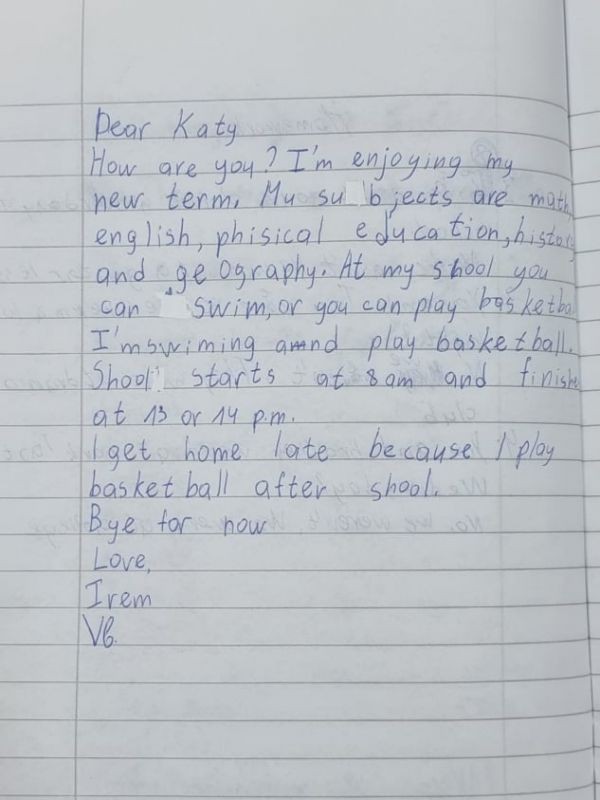 Dear Katy
How are you? I'm enjoying my
new term. My su bjects are math,
english, phisical education, history
and geography. At my shool you
can swim, or you can play basketba
I'm swiming and play basketball.
Shool starts at 8 am and finishe
at 13 or 14 p.m.
I get home late because I play
basketball after shool.
Bye for now
Love,
Irem
Vb.